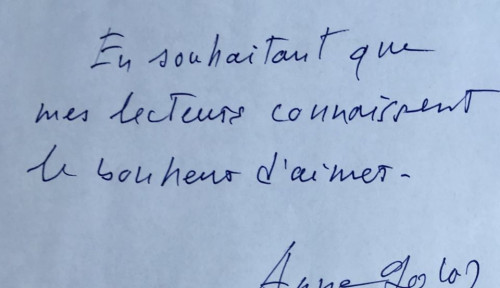 En souhaitant que
mes lecteurs connaissent
le bonheur d'aimer.
Anne Golon